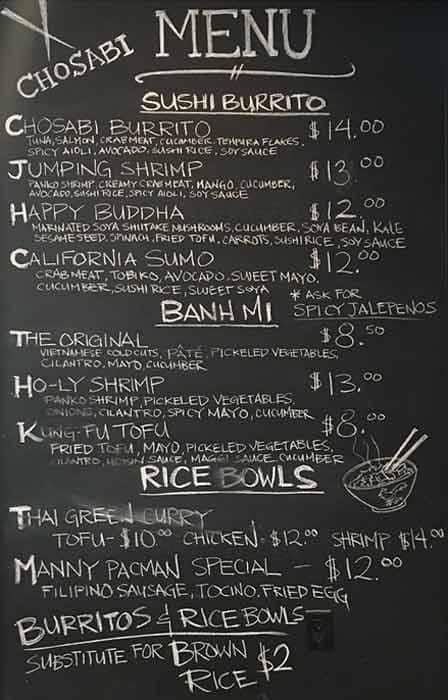 CHOSABI
MENU
SUSHI BURRITO
CHOSABI BURRITO $14.00
TUNA, SALMON, CRABMEAT, CUCUMBER, TEMPURA FLAKES,
SPICY AIOLI, AVOCADO, SUSHI RICE, SOY SAUCE
JUMPING SHRIMP $13.00
PANKO SHRIMP, CREAMY CRABMEAT, MANGO, CUCUMBER,
AVOCADO, SUSHI RICE, SPICY AIOLI, SOY SAUCE
HAPPY BUDDHA $12.00
MARINATED SOYA SHIITAKE MUSHROOMS, CUCUMBER, SOYA BEAN, KALE
SESAME SEED, SPINACH, FRIED TOFU, CARROTS, SUSHI RICE, SOY SAUCE
CALIFORNIA SUMO $12.00
CRABMEAT, TOBIKO, AVOCADO, SWEET MAYO,
CUCUMBER, SUSHI RICE, SWEET SOYA
* ASK FOR
SPICY JALEPENOS
BANH MI
THE ORIGINAL $8.50
VIETNAMESE COLD CUTS, PÂTÉ, PICKELED VEGETABLES,
CILANTRO, MAYO, CUCUMBER
HO-LY SHRIMP $13.00
PANKO SHRIMP, PICKELED VEGETABLES,
ONIONS, CILANTRO, SPICY MAYO, CUCUMBER
KUNG-FU TOFU $8.00
FRIED TOFU, MAYO, PICKELED VEGETABLES,
CILANTRO, HOISIN SAUCE, MAGGI SAUCE, CUCUMBER
RICE BOWLS
THAI GREEN CURRY
TOFU - $10.00 CHICKEN - $12.00 SHRIMP $14.00
MANNY PACMAN SPECIAL - $12.00
FILIPINO SAUSAGE, TOCINO, FRIED EGG
BURRITOS & RICE BOWLS
SUBSTITUTE FOR BROWN
RICE $2